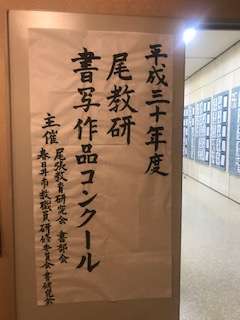 平成三十年度
尾教研
書写作品コンクール
主催 尾張教育研究会 書部会
春日井市教職員研修委員会 書研究会